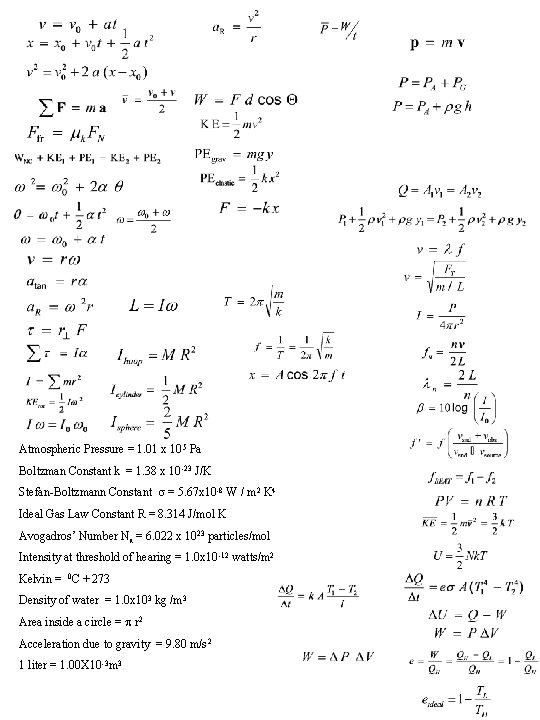 v = v₀ + at
x = x₀ + v₀t + 1/2 a t²
v² = v₀² + 2 a (x − x₀)
∑ F = m a
v̄ = (v₀ + v)/2
F_fr = μ_k F_N
W_NC + KE₁ + PE₁ = KE₂ + PE₂
ω² = ω₀² + 2α θ
θ = ω₀t + 1/2 α t²
ω = (ω₀ + ω)/2
ω = ω₀ + α t
v = rω
a_tan = rα
a_R = ω² r
L = Iω
τ = r⊥ F
∑ τ = Iα
I = ∑ mr²
KE_rot = 1/2 Iω²
I ω = I₀ ω₀
a_R = v²/r
W = F d cos Θ
KE = 1/2 mv²
PE_grav = mgy
PE_elastic = 1/2 kx²
F = −kx
T = 2π √(m/k)
f = 1/T = 1/2π √(k/m)
x = A cos 2π f t
I_hoop = M R²
I_cylinder = 1/2 M R²
I_sphere = 2/5 M R²
P̄ = W/t
p = m v
P = P_A + P_G
P = P_A + ρ g h
Q = A₁v₁ = A₂v₂
P₁ + 1/2 ρ v₁² + ρg y₁ = P₂ + 1/2 ρ v₂² + ρ g y₂
v = λ f
v = √(F_T / (m / L))
I = P / 4πr²
f_n = nv / 2L
λ_n = 2 L / n
β = 10 log (I / I₀)
f ' = f ((v_snd + v_obs) / (v_snd ▯ v_source))
f_BEAT = f₁ − f₂
PV = n R T
K̄Ē = 1/2 m v̄² = 3/2 k T
U = 3/2 NkT
ΔQ/Δt = eσ A (T₁⁴ − T₂⁴)
ΔU = Q − W
W = P ΔV
e = W/Q_H = (Q_H − Q_L)/Q_H = 1 − Q_L/Q_H
e_ideal = 1 − T_L/T_H
ΔQ/Δt = k A (T₁ − T₂)/l
W = Δ P ΔV
Atmospheric Pressure = 1.01 x 10⁵ Pa
Boltzman Constant k = 1.38 x 10⁻²³ J/K
Stefan-Boltzmann Constant σ = 5.67x10⁻⁸ W / m² K⁴
Ideal Gas Law Constant R = 8.314 J/mol K
Avogadros’ Number Nₐ = 6.022 x 10²³ particles/mol
Intensity at threshold of hearing = 1.0x10⁻¹² watts/m²
Kelvin = ⁰C + 273
Density of water = 1.0x10³ kg /m³
Area inside a circle = π r²
Acceleration due to gravity = 9.80 m/s²
1 liter = 1.00X10⁻³m³